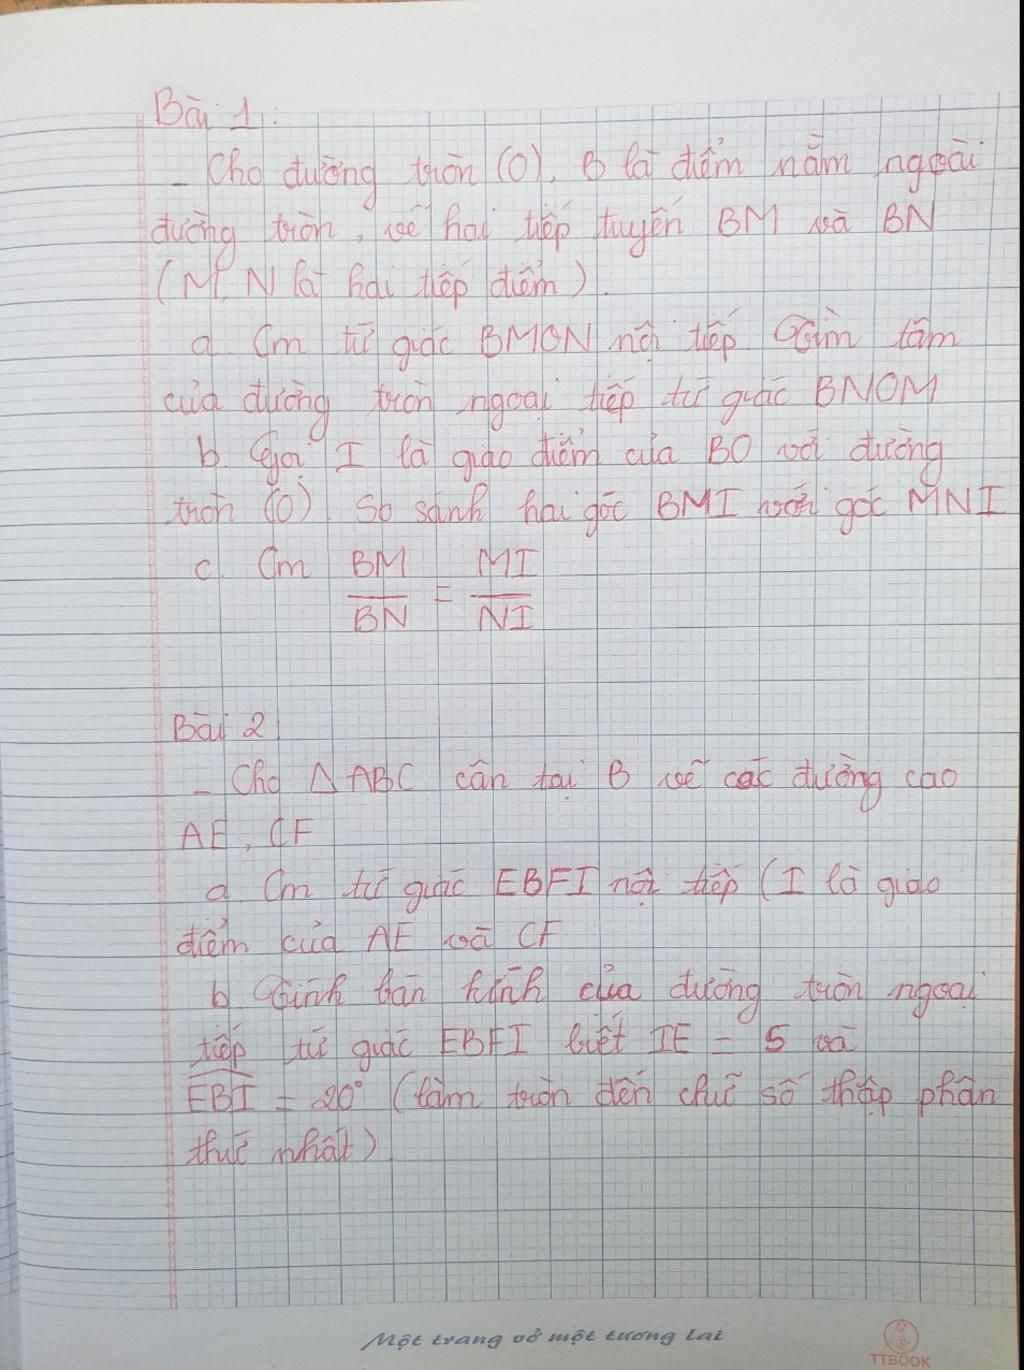 Bài 1:
- Cho đường tròn (O), B là điểm nằm ngoài
đường tròn, vẽ hai tiếp tuyến BM và BN
(M, N là hai tiếp điểm).
a Cm tứ giác BMON nội tiếp Tìm tâm
của đường tròn ngoại tiếp tứ giác BNOM
b. Gọi I là giao điểm của BO với đường
tròn (O). So sánh hai góc BMI với góc MNI
c. Cm BM/BN = MI/NI
Bài 2.
- Cho Δ ABC cân tại B vẽ các đường cao
AE, CF
a. Cm tứ giác EBFI nội tiếp (I là giao
điểm của AE và CF
b Tính bán kính của đường tròn ngoại
tiếp tứ giác EBFI biết IE = 5 và
EBI = 20° (làm tròn đến chữ số thập phân
thứ nhất)
Một trang vở một tương lai
TTBOOK